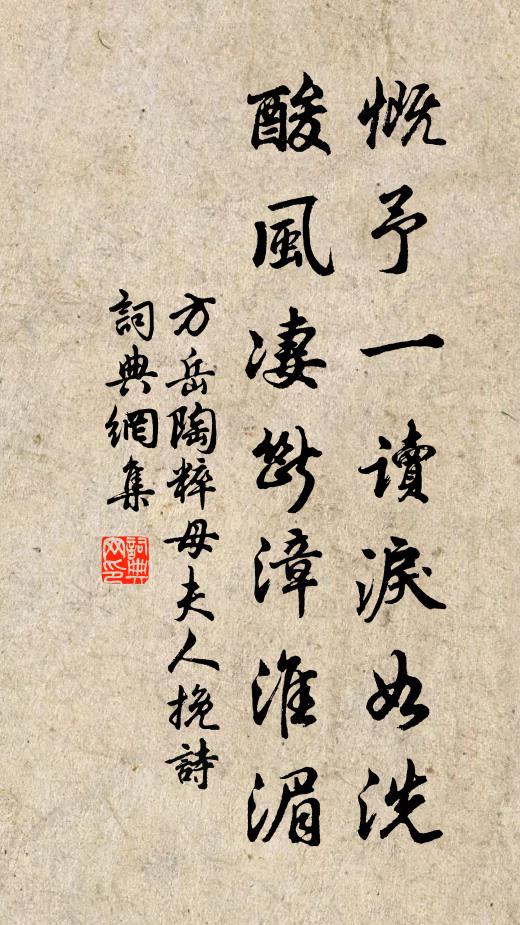 慨予一讀淚如洗
酸風凄斷漳淮湄
方岳陶粹母夫人挽詩
詞典網集
詞典网印